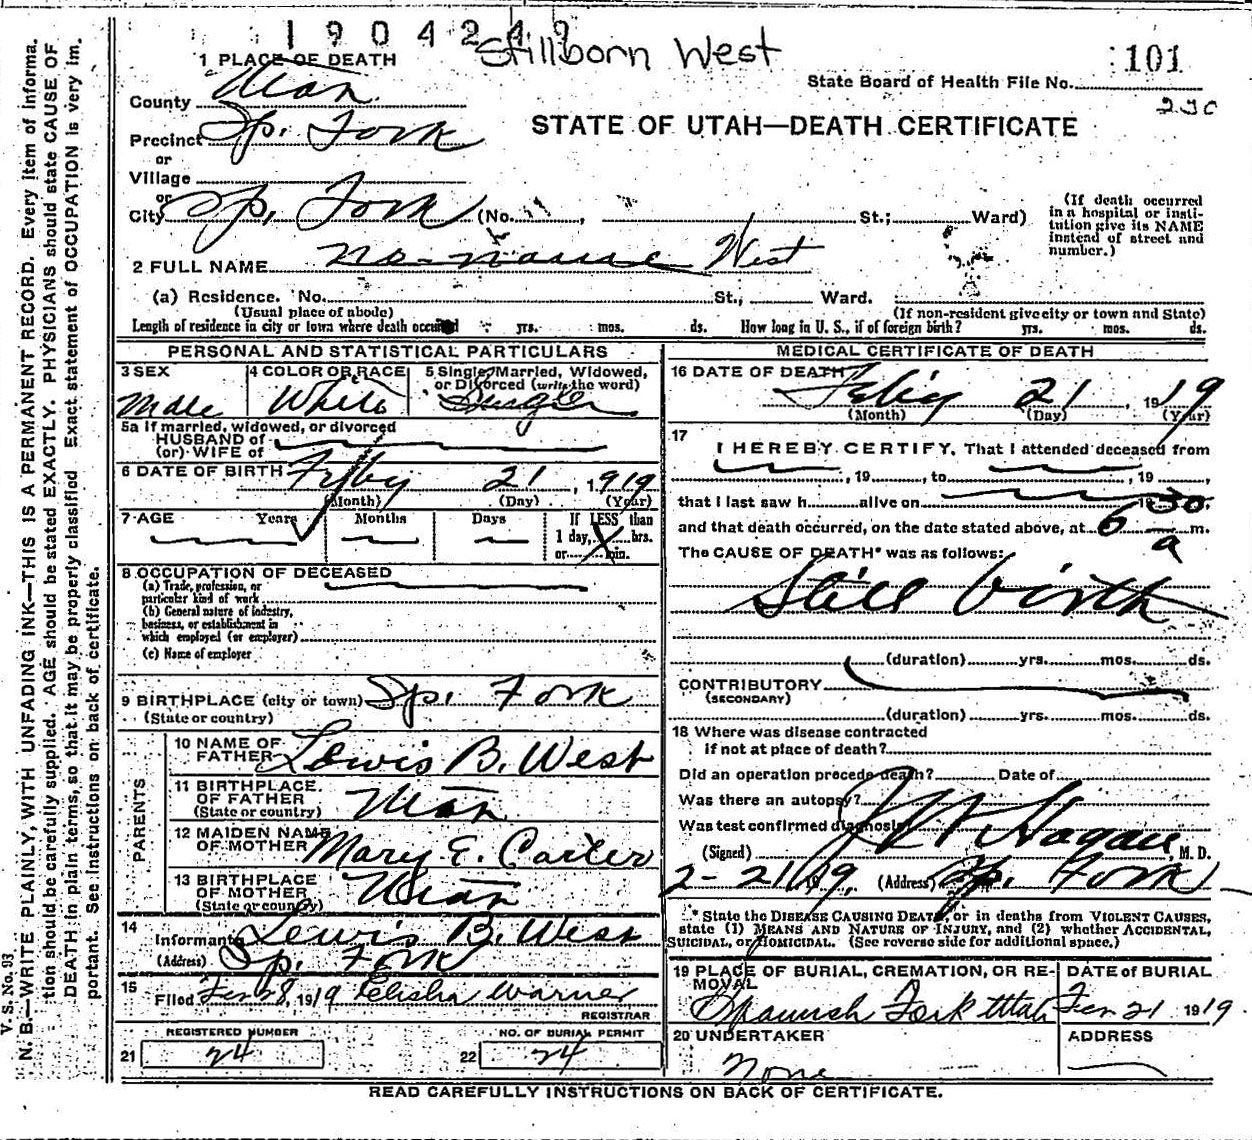 1904242
Stillborn West
101
1 PLACE OF DEATH
State Board of Health File No.
230
County Utah
STATE OF UTAH—DEATH CERTIFICATE
Precinct Sp. Fork
or
Village
or
City Sp. Fork (No. , St.; Ward)
(If death occurred in a hospital or insti-
tution give its NAME instead of street and number.)
2 FULL NAME no-name West
(a) Residence. No. St., Ward.
(Usual place of abode) (If non-resident give city or town and State)
Length of residence in city or town where death occurred yrs. mos. ds. How long in U. S., if of foreign birth? yrs. mos. ds.
PERSONAL AND STATISTICAL PARTICULARS
3 SEX Male
4 COLOR OR RACE White
5 Single, Married, Widowed, or Divorced (write the word) Single
5a If married, widowed, or divorced
HUSBAND of
(or) WIFE of
6 DATE OF BIRTH Feby 21, 1919
(Month) (Day) (Year)
7 AGE Years Months Days If LESS than
1 day, hrs.
or min.
8 OCCUPATION OF DECEASED
(a) Trade, profession, or
particular kind of work
(b) General nature of industry,
business, or establishment in
which employed (or employer)
(c) Name of employer
9 BIRTHPLACE (city or town) Sp. Fork
(State or country)
PARENTS
10 NAME OF FATHER Lewis B. West
11 BIRTHPLACE OF FATHER Utah
(State or country)
12 MAIDEN NAME OF MOTHER Mary E. Carter
13 BIRTHPLACE OF MOTHER Utah
(State or country)
14 Informant Lewis B. West
(Address) Sp. Fork
15 Filed Feb 28, 1919 Elisha Warner
REGISTRAR
REGISTERED NUMBER
21 24
NO. OF BURIAL PERMIT
22 24
MEDICAL CERTIFICATE OF DEATH
16 DATE OF DEATH Feby 21, 1919
(Month) (Day) (Year)
17 I HEREBY CERTIFY, That I attended deceased from
, 19 , to , 19 ,
that I last saw h alive on 19
and that death occurred, on the date stated above, at 6 30 a m.
The CAUSE OF DEATH* was as follows:
Still birth
(duration) yrs. mos. ds.
CONTRIBUTORY
(SECONDARY)
(duration) yrs. mos. ds.
18 Where was disease contracted
if not at place of death?
Did an operation precede death? Date of
Was there an autopsy?
Was test confirmed diagnosis?
(Signed) Hagan M. D.
2-21, 1919, (Address) Sp. Fork
* State the DISEASE CAUSING DEATH, or in deaths from VIOLENT CAUSES,
state (1) MEANS AND NATURE OF INJURY, and (2) whether ACCIDENTAL,
SUICIDAL, or HOMICIDAL. (See reverse side for additional space.)
19 PLACE OF BURIAL, CREMATION, OR RE-
MOVAL
Spanish Fork Utah
DATE of BURIAL
Feb 21 1919.
20 UNDERTAKER
None
ADDRESS
READ CAREFULLY INSTRUCTIONS ON BACK OF CERTIFICATE.
V. S. No. 93
N. B.—WRITE PLAINLY, WITH UNFADING INK—THIS IS A PERMANENT RECORD. Every item of informa-
tion should be carefully supplied. AGE should be stated EXACTLY. PHYSICIANS should state CAUSE OF
DEATH in plain terms, so that it may be properly classified. Exact statement of OCCUPATION is very im-
portant. See instructions on back of certificate.